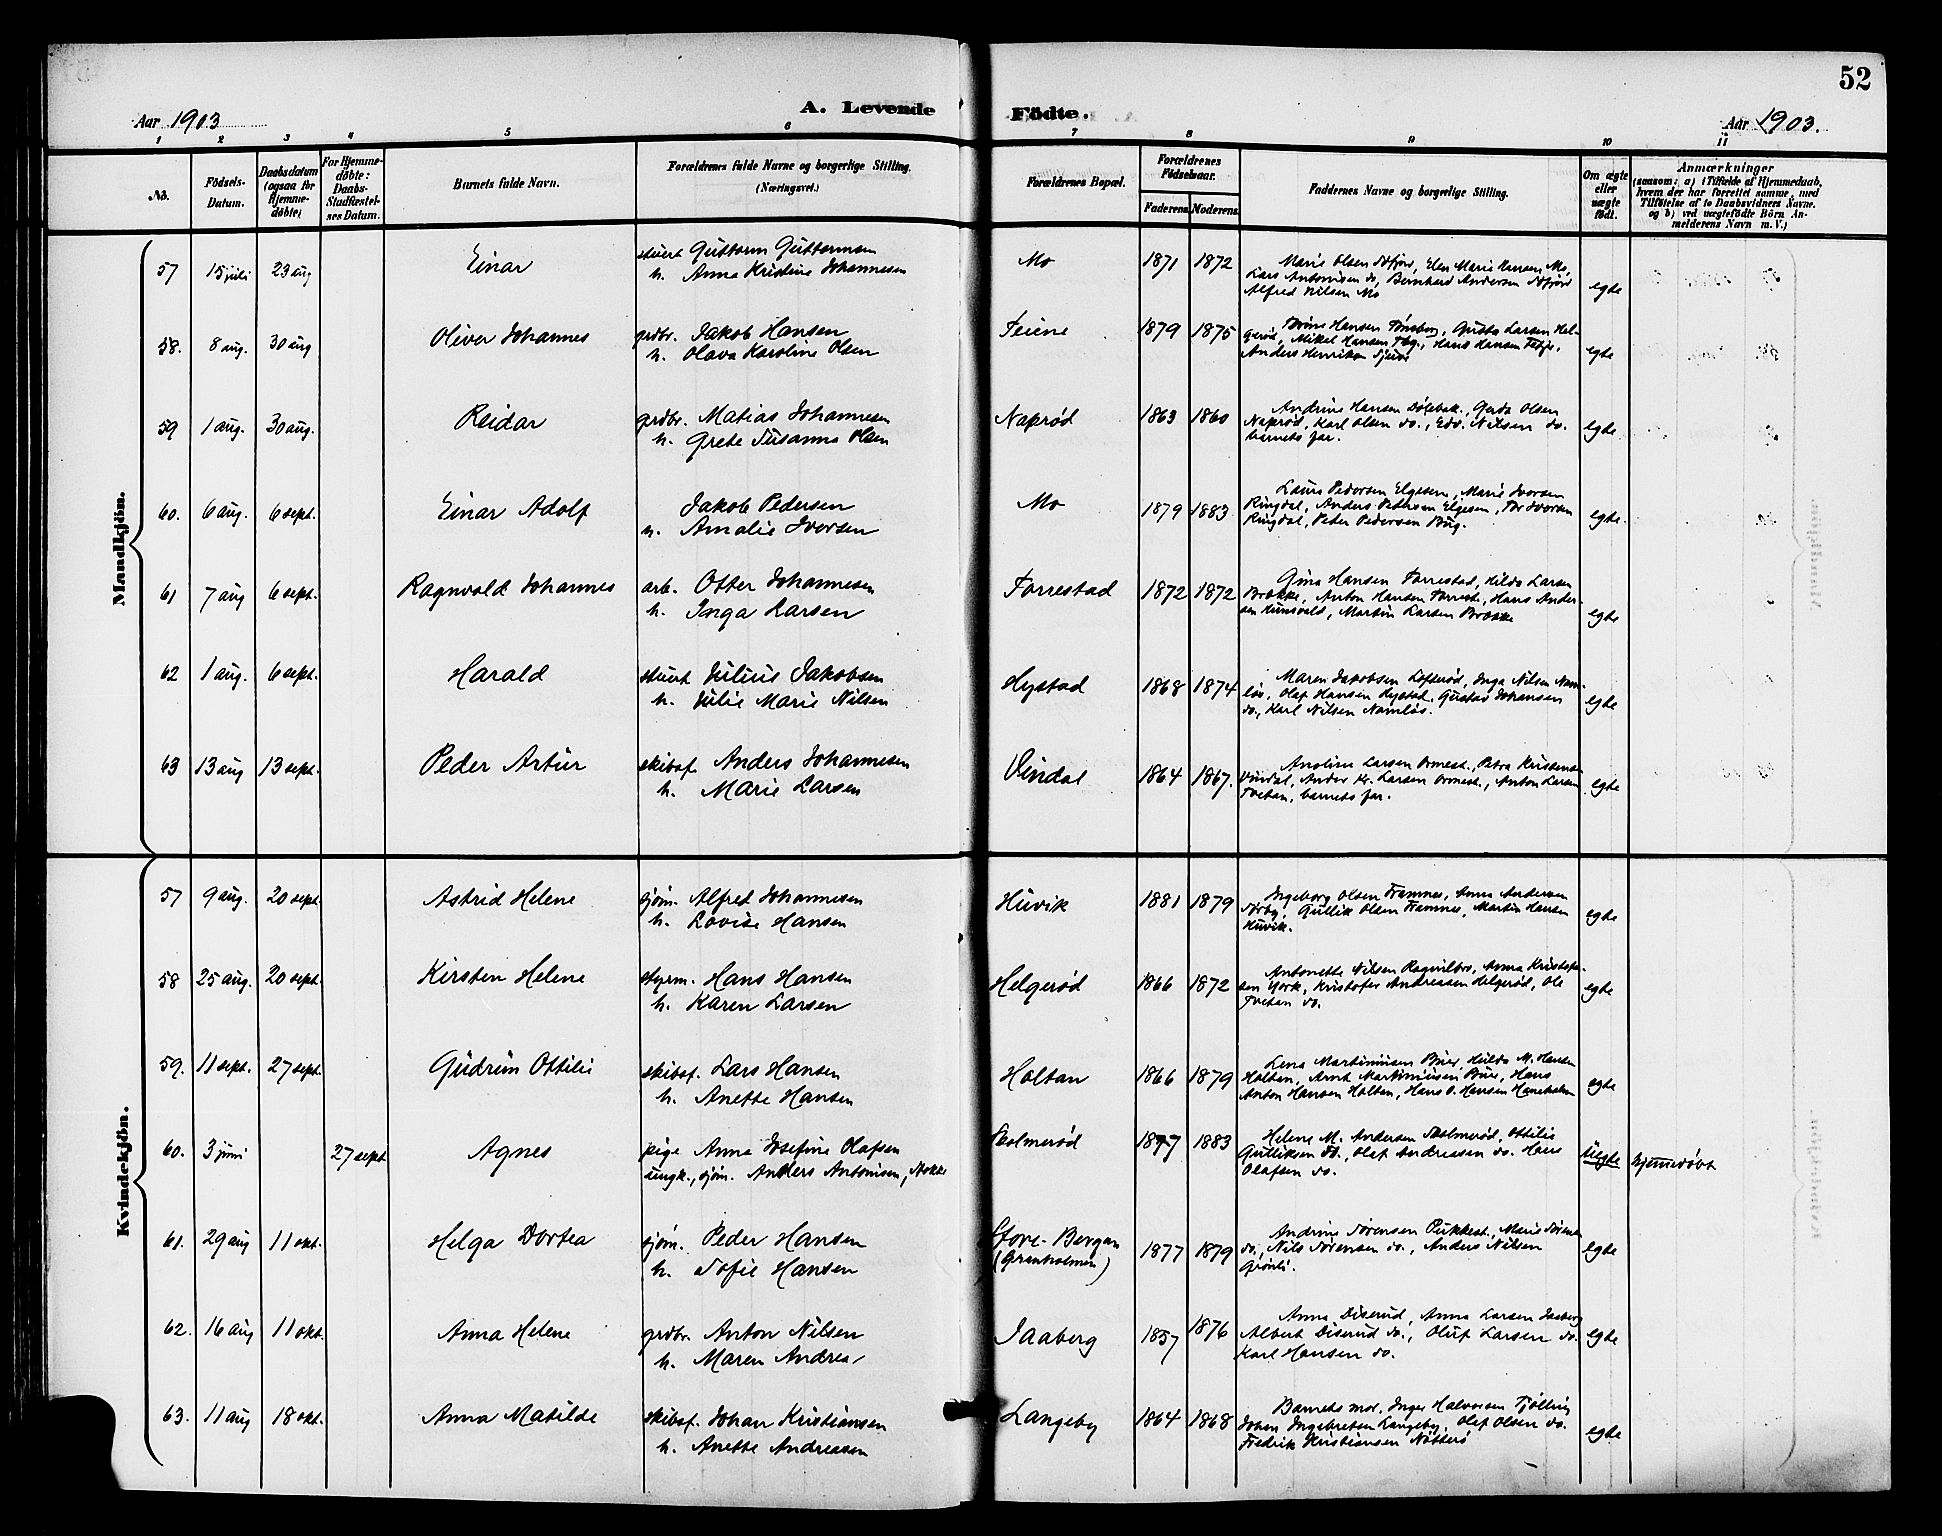 52
Aar 1903
A. Levende
Födte.
Aar 1903.
1 2 3 4 5 6 7 8 9 10 11
No.
Födsels-
Datum.
Daabsdatum
(ogsaa for
Hjemme-
döbte)
For Hjemme-
döbte:
Daabs-
Stadfæstel-
ses Datum.
Barnets fulde Navn.
Forældrenes fulde Navne og borgerlige Stilling.
(Næringsvei.)
Forældrenes Bopæl.
Forældrenes
Födselsaar.
Faderens Moderens
Faddernes Navne og borgerlige Stilling.
Om ægte
eller
uægte
födt.
Anmærkninger
(saasom: a) i Tilfælde af Hjemmedaab,
hvem der har forrettet samme, med
Tilföielse af to Daabsvidners Navne.
og b) ved uægtefödte Börn An-
melderens Navn m. V.)
Mandkjön.
57 15 juli 23 aug Einar stuert Guttorm Guttormsen
h. Anna Kristine Johannesen
Mo 1871 1872
Marie Olsen, Elen Marie Hansen Mo,
Lars Antonisen do, Bernhard Andersen
Alfred Nilsen Mo
egte
58. 8 aug. 30 aug Oliver Johannes grdbr. Jakob Hansen
h. Olava Karoline Olsen
Feiene 1879 1875
Hansen Tønsberg, Gusta Larsen Hel-
gerød, Mikal Hansen Tbg., Hans Hansen
Anders Henriksen
egte
59 1 aug. 30 aug. Reidar grdbr. Matias Johannesen
h. Grete Susanna Olsen
Naprød 1863 1860
Andrine Hansen, Gerda Olsen
Naprød, Karl Olsen do., Edv. Nilsen do.
barnets far.
egte
60. 6 aug. 6 sept. Einar Adolf Jakob Pedersen
h. Amalie Iversen
Mo 1879 1883
Laura Pedersen Elgesem, Marie Iversen
Ringdal, Anders Pedersen Elgesem, Iversen
Ringdal, Peter Pedersen
egte
61 7 aug 6 sept. Ragnvald Johannes arb. Otter Johannesen
h. Inga Larsen
Torrestad 1872 1872
Gina Hansen Torrestad, Hilda Larsen
Brekke, Anton Hansen Torrest., Hans Ander-
sen, Martin Larsen Brekke
egte
62 1 aug. 6 sept. Harald stuert Julius Jakobsen
h. Julie Marie Nilsen
Hystad 1868 1874
Maren Jakobsen Lofterød, Inga Nilsen Nam-
løs, Olaf Hansen Hystad. Gustav Johansen
do., Karl Nilsen Namløs.
egte
63 13 aug 13 sept. Peder Artur skibsf. Anders Johannesen
h. Marie Larsen
Vindal 1864 1867.
Anoline Larsen Ormest., Petra Kristensen
Vindal, Anders Kr. Larsen Ormest., Anton Larsen
Tvetan, barnets far.
egte
Kvindekjön.
57 9 aug. 20 sept. Astrid Helene sjøm. Alfred Johannesen
h. Lovise Hansen
Huvik 1881 1879
Ingeborg Olsen Framnes, Anna Andersen
Sørby, Gullik Olsen Framnes, Martin Hansen
Huvik.
egte
58 25 aug. 20 sept. Kirsten Helene styrm. Hans Hansen
h. Karen Larsen
Helgerød 1866 1872
Antonette Nilsen, Anna Kristofer-
sen York, Kristofer Andreasen Helgerød, Ole
Tvetan do.
egte
59. 11 sept. 27 sept. Gudrun Ottilie skibsf. Lars Hansen
h. Anette Hansen
Holtan 1866 1879
Lena Martiniusen Bue, Hulda M. Hansen
Holtan, Arnt Martiniusen Bue, Hans
Anton Hansen Holtan, Hans O. Hansen Haneholm
egte
60. 3 juni 27 sept Agnes pige Anna Josefine Olafsen
ungk., sjøm. Anders Antonisen, Stokke
Skolmerød 1877 1883
Helene M. Andersen Skolmerød, Ottilie
Gulliksen do., Olaf Andreassen do. Hans
Olafsen do.
uegte hjemmedøbt
61. 29 aug 11 okt. Helga Dortea sjøm. Peder Hansen
h. Sofie Hansen
Store-Bergan
(Granholmen)
1877 1879
Andrine Sørensen Pukkest., Marie Sørensen
do., Nils Sørensen do., Anders Nilsen
Grønli.
egte
62. 16 aug 11 okt. Anna Helene grdbr. Anton Nilsen
h. Maren Andrea
Jaaberg 1857 1876
Anna Diserud, Anna Larsen Jaaberg
Albert Diserud do., Oluf Larsen do.
Karl Hansen do.
egte
63. 11 aug 18 okt. Anna Matilde skibsf. Johan Kristiansen
h. Anette Andreasen
Langeby 1864 1868
Barnets mor, Inger Halvorsen Tjølling
Johan Ingebretsen Langeby, Olaf Olsen do.
Fredrik Kristiansen Nøtterø
egte